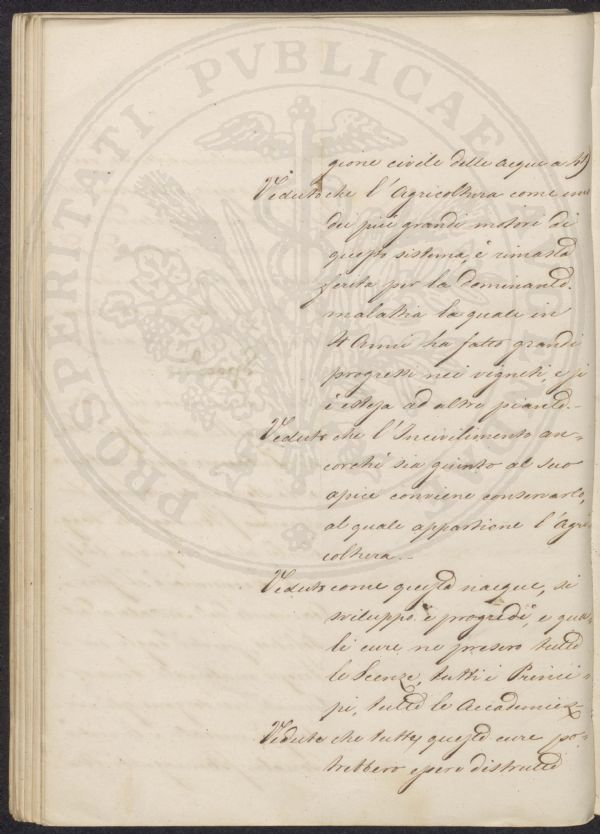 PROSPERITATI PVBLICAE AVGENDAE
gione civile delle acque a 49
Veduto che l'Agricoltura come uno
dei più grandi motori di
questo sistema, è rimasta
ferita per la dominante
malattia la quale in
4 Anni ha fatto grandi
progressi nei vigneti, e si
è estesa ad altre piante.-
Veduto che l'Incivilimento an-
corchè sia giunto al suo
apice conviene conservarlo,
al quale appartiene l'Agri-
coltura.-
Veduto come questa nacque, si
sviluppò e progredì, e qua-
li cure ne presero tutte
le Scenze, tutti i Princi-
pi, tutte le Accademie
Veduto che tutte queste cure po-
trebbero essere distrutte